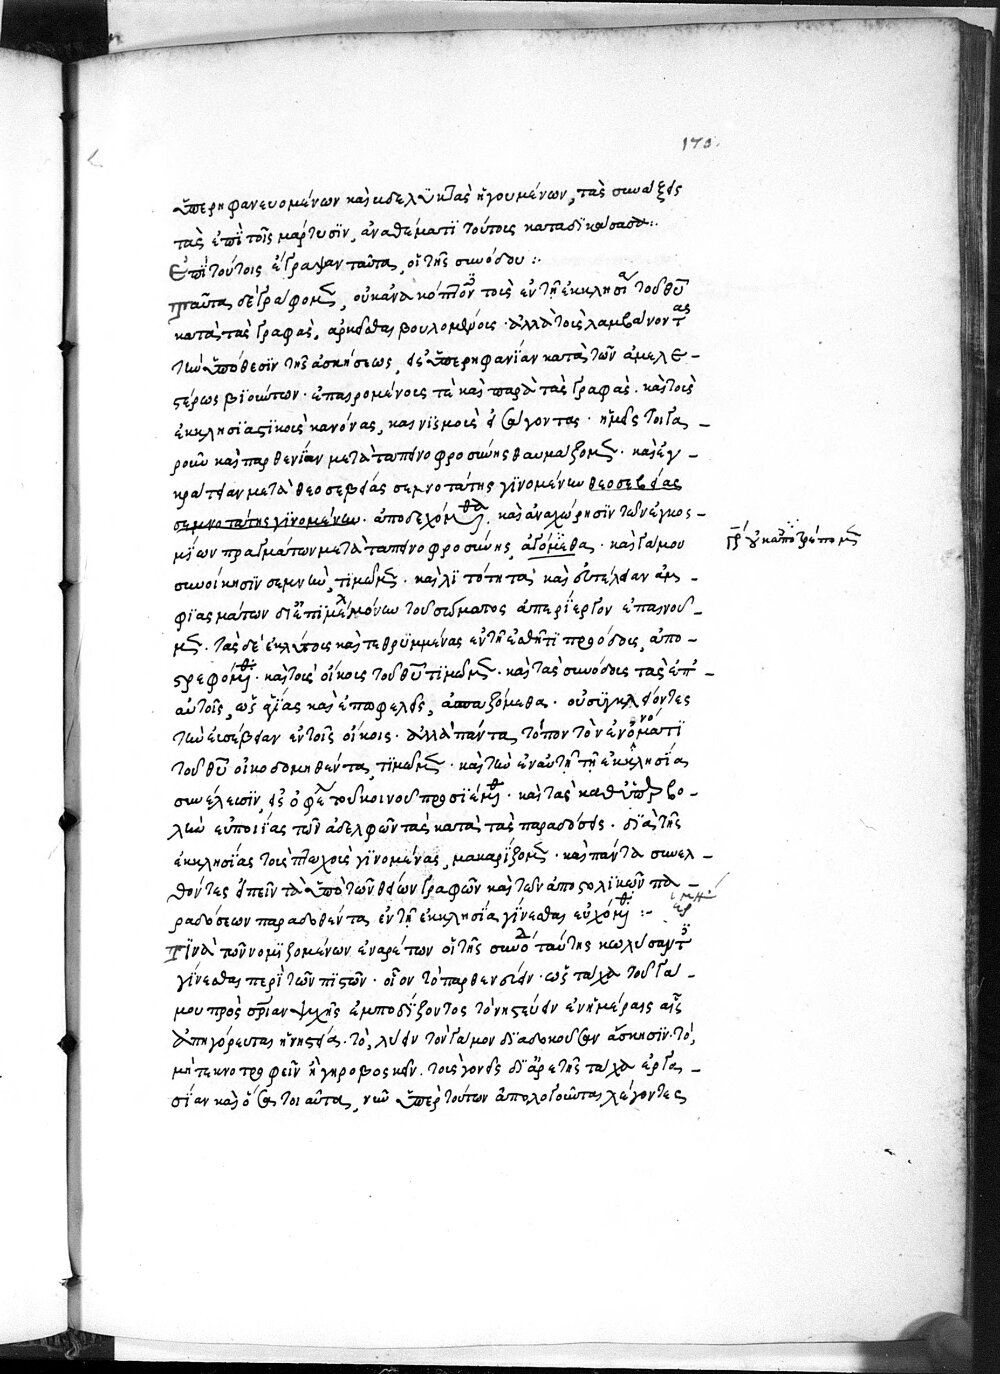 173.
ὑπερηφανευομένων καὶ βδελυκτὰς ἡγουμένων, τὰς συνάξεις
τὰς ἐπὶ τοῖς μάρτυσϊν, ἀναθέματϊ τούτοις καταδϊκάσασα:
Ἐπὶ τούτοις ἔγραψαν ταῦτα, οἱ τῆς συνόδου:
Ταῦτα δὲ γράφομεν, οὐκ ἀνακόπτοντες τοὺς ἐν τῇ ἐκκλησίᾳ τοῦ θυ
κατὰ τὰς γραφὰς, ἀσκεῖσθαι βουλομένοις· ἀλλὰ τοὺς λαμβάνοντας
τὴν ὑπόθεσϊν τῆς ἀσκήσεως, εἰς ὑπερηφανίαν κατὰ τῶν ἀμελε-
στέρως βϊούντων· ἐπαιρομένοις τὲ καὶ παρὰ τὰς γραφὰς· καὶ τοὺς
ἐκκλησϊαστϊκοὺς κανόνας, καινϊσμοὺς εἰσάγοντας· ἡμεῖς τοιγα-
ροῦν καὶ παρθενίαν μετὰ ταπεινοφροσύνης θαυμάζομεν· καὶ ἐγ-
κράτειαν μετὰ θεοσεβείας σεμνοτάτης γϊνομένην θεοσεβείας
σεμνοτάτης γϊνομένην· ἀποδεχόμεθα, καὶ ἀναχώρησϊν τῶν ἐγκοσ-
μίων πραγμάτων μετὰ ταπεινοφροσύνης, ἀγόμεθα· καὶ γάμου
συνοίκησϊν σεμνὴν, τϊμῶμεν· καὶ λϊτότητα καὶ εὐτέλειαν ἀμ-
φϊασμάτων δι' ἐπϊμέλειαν μόνον τοῦ σώματος ἀπερίεργον ἐπαινοῦ-
μεν· τὰς δὲ ἐκλύτους καὶ τεθρυμμένας ἐν τῇ ἐσθῆτϊ προόδους, ἀπο-
στρεφόμεθα· καὶ τοὺς οἴκους τοῦ θυ τϊμῶμεν· καὶ τὰς συνόδους τὰς ἐπ'
αὐτοῖς, ὡς ἁγίας καὶ ἐπωφελεῖς, ἀσπαζόμεθα· οὐ συγκλείοντες
τὴν εὐσέβειαν ἐν τοῖς οἴκοις· ἀλλὰ πάντα τόπον τὸν ἐν ὀνόματϊ
τοῦ θυ οἰκοδομηθέντα, τϊμῶμεν· καὶ τὴν ἐν αὐτῇ τῇ ἐκκλησίᾳ
συνέλευσϊν, εἰς ὠφέλειαν τοῦ κοινοῦ προσϊέμεθα· καὶ τὰς καθ' ὑπερβο-
λὴν εὐποιΐας τῶν ἀδελφῶν τὰς κατὰ τὰς παραδόσεις· δϊὰ τῆς
ἐκκλησίας τοὺς πτωχοὺς γϊνομένας, μακαρίζομεν· καὶ πάντα συνελ-
θόντες εἰπεῖν τὰ ὑπὸ τῶν θείων γραφῶν καὶ τῶν ἀποστολικῶν πα-
ραδόσεων παραδοθέντα ἐν τῇ ἐκκλησίᾳ γίνεσθαι εὐχόμεθα:-
Τϊνὰ τῶν νομϊζομένων ἐναρέτων οἱ τῆς συνόδου ταύτης κωλύσαντες
γίνεσθαι περὶ τῶν πϊστῶν· οἷον τὸ παρθενεύειν· ὡς τάχα τοῦ γά-
μου πρὸς σρίαν ψυχῆς ἐμποδίζοντος τὸ νηστεύειν ἐν ἡμέραις αἷς
ἀπηγόρευται ἡ νηστεία· τὸ, λύειν τὸν γάμον δϊὰ δοκοῦσαν ἄσκησϊν· τὸ,
μὴ τεκνοτροφεῖν ἢ γηροβοσκεῖν· τοὺς γονεῖς δϊ' ἀρετῆς τάχα ἐργα-
σίαν καὶ ὅσα τοιαῦτα, νῦν ὑπὲρ τούτων ἀπολογοῦνται λέγοντες